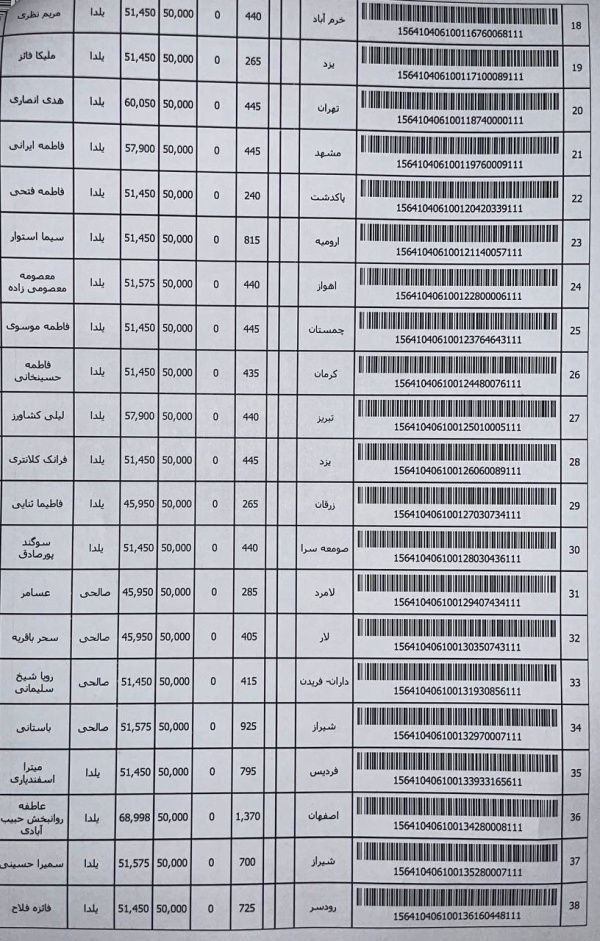 18 156410406100116760068111 خرم آباد 440 0 50,000 51,450 یلدا مریم نظری
19 156410406100117100089111 یزد 265 0 50,000 51,450 یلدا ملیکا فائز
20 156410406100118740000111 تهران 445 0 50,000 60,050 یلدا هدی انصاری
21 156410406100119760009111 مشهد 445 0 50,000 57,900 یلدا فاطمه ایرانی
22 156410406100120420339111 پاکدشت 240 0 50,000 51,450 یلدا فاطمه فتحی
23 156410406100121140057111 ارومیه 815 0 50,000 51,450 یلدا سیما استوار
24 156410406100122800006111 اهواز 440 0 50,000 51,575 یلدا معصومه
معصومی زاده
25 156410406100123764643111 چمستان 445 0 50,000 51,450 یلدا فاطمه موسوی
26 156410406100124480076111 کرمان 435 0 50,000 51,450 یلدا فاطمه
حسینخانی
27 156410406100125010005111 تبریز 440 0 50,000 57,900 یلدا لیلی کشاورز
28 156410406100126060089111 یزد 445 0 50,000 51,450 یلدا فرانک کلانتری
29 156410406100127030734111 زرقان 265 0 50,000 45,950 یلدا فاطیما ثنایی
30 156410406100128030436111 صومعه سرا 440 0 50,000 51,450 یلدا سوگند
پورصادق
31 156410406100129407434111 لامرد 285 0 50,000 45,950 صالحی عسامر
32 156410406100130350743111 لار 405 0 50,000 45,950 صالحی سحر باقریه
33 156410406100131930856111 داران- فریدن 415 0 50,000 51,450 صالحی رویا شیخ
سلیمانی
34 156410406100132970007111 شیراز 925 0 50,000 51,575 صالحی باستانی
35 156410406100133933165611 فردیس 795 0 50,000 51,450 یلدا میترا
اسفندیاری
36 156410406100134280008111 اصفهان 1,370 0 50,000 68,998 یلدا عاطفه
روانبخش حبیب
آبادی
37 156410406100135280007111 شیراز 700 0 50,000 51,575 یلدا سمیرا حسینی
38 156410406100136160448111 رودسر 725 0 50,000 51,450 یلدا فائزه فلاح